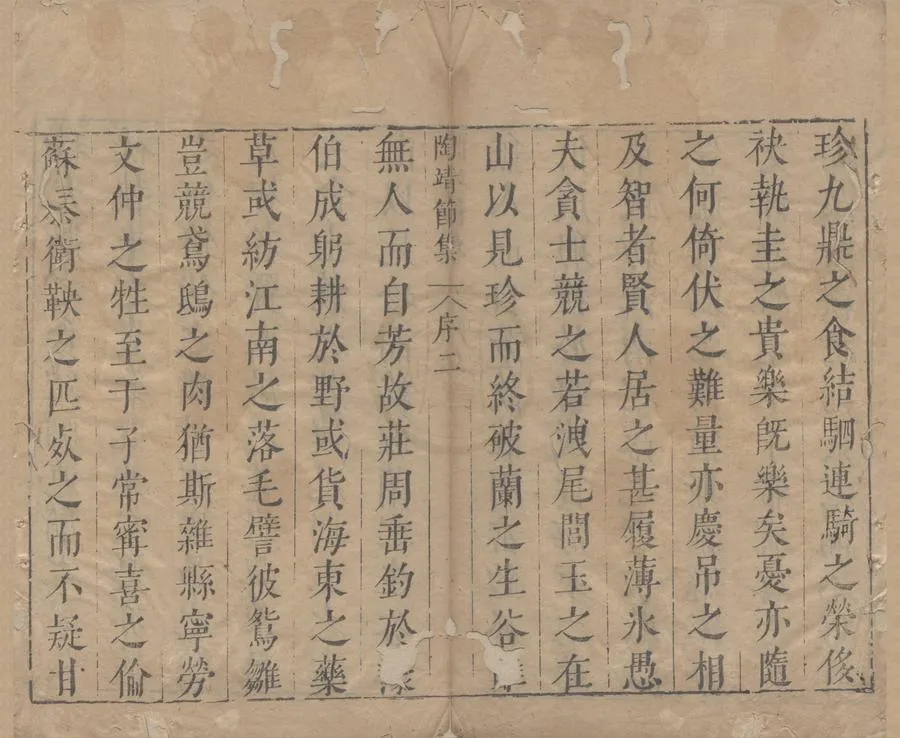 珍九鼎之食結駟連騎之榮侈
袂執圭之貴樂旣樂矣憂亦隨
之何倚伏之難量亦慶吊之相
及智者賢人居之甚履薄氷愚
夫貪士競之若洩尾閭玉之在
山以見珍而終破蘭之生谷
陶靖節集 序 二
無人而自芳故莊周垂釣於
伯成躬耕於野或貨海東之藥
草或紡江南之落毛譬彼鴛雛
豈競鳶鴟之肉猶斯雜縣寧勞
文仲之牲至于子常寗喜之倫
蘇秦衛鞅之匹死之而不疑甘